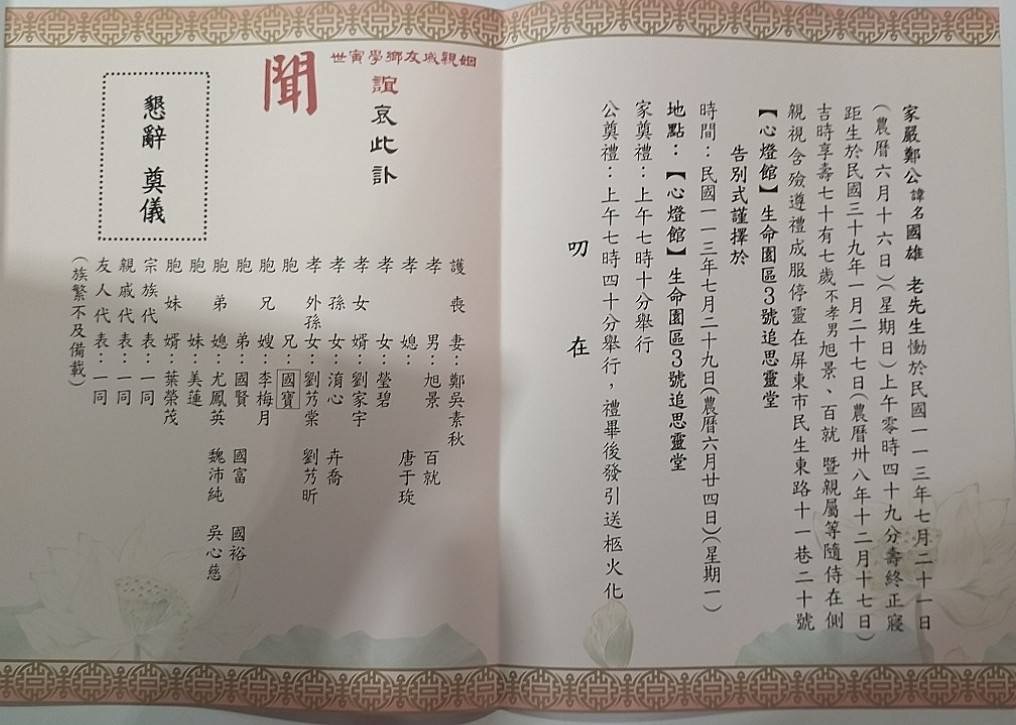 家嚴鄭公諱名國雄 老先生慟於民國一一三年七月二十一日
(農曆六月十六日)(星期日)上午零時四十九分壽終正寢
距生於民國三十九年一月二十七日(農曆卅八年十二月十七日)
吉時享壽七十有七歲不孝男旭景、百就 暨親屬等隨侍在側
親視含殮遵禮成服停靈在屏東市民生東路十一巷二十號
【心燈館】生命園區3號追思靈堂
告別式謹擇於
時間：民國一一三年七月二十九日(農曆六月廿四日)(星期一)
地點：【心燈館】生命園區3號追思靈堂
家奠禮：上午七時十分舉行
公奠禮：上午七時四十分舉行，禮畢後發引送柩火化
叨 在
世寅學鄉友戚親姻
誼哀此訃
聞
懇辭 奠儀
護喪 妻：鄭吳素秋
孝 男：旭景 百就
孝 媳： 唐于琁
孝 女：瑩碧
孝女 婿：劉家宇
孝孫 女：淯心 卉喬
孝外孫女：劉芀棠 劉芀昕
胞 兄：國寶
胞兄 嫂：李梅月
胞 弟：國賢 國富 國裕
胞弟 媳：尤鳳英 魏沛純 吳心慈
胞 妹：美蓮
胞妹 婿：葉榮茂
宗族代表：一同
親戚代表：一同
友人代表：一同
(族繁不及備載)